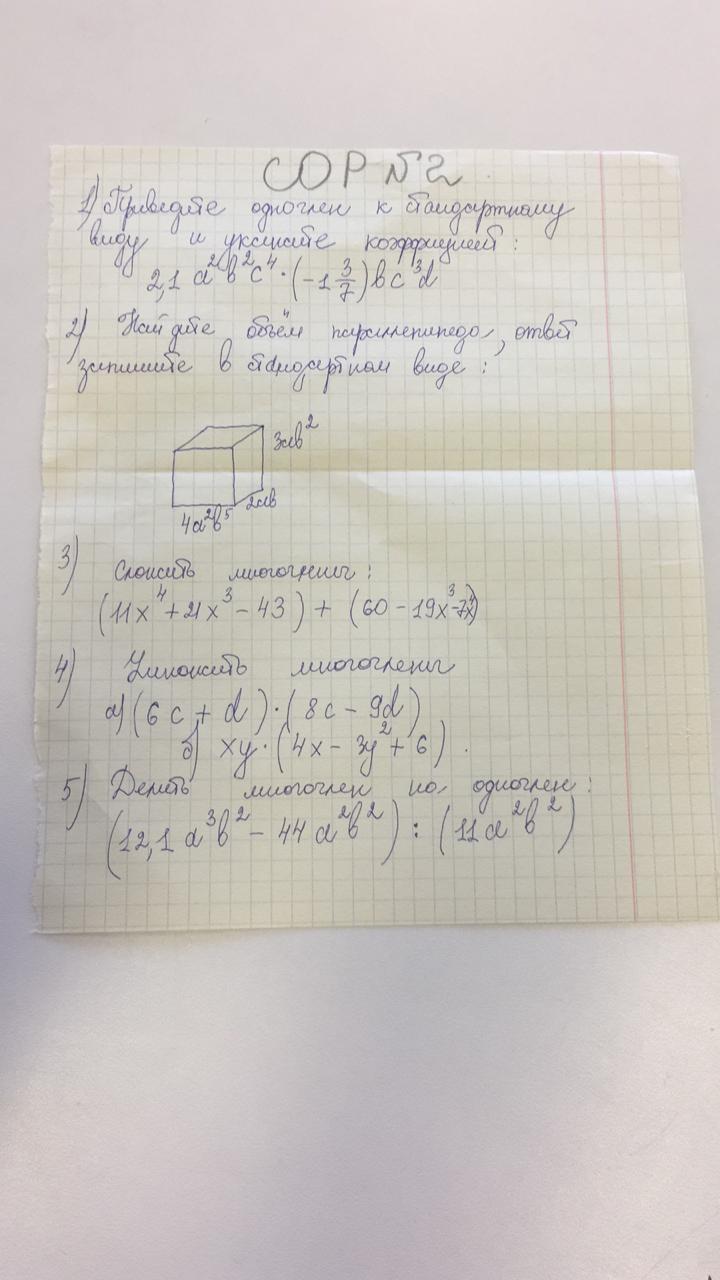 СОР №2
1) Приведите одночлен к стандартному
виду и укажите коэффициент:
2,1 a²b²c⁴ · (-1 3/7) bc³d
2) Найдите объём параллепипеда, ответ
запишите в стандартном виде:
3ab²
2ab
4a²b⁵
3) Сложить многочлены:
(11x⁴ + 21x³ - 43) + (60 - 19x³ - 7x⁴)
4) Умножить многочлены
а) (6c + d) · (8c - 9d)
б) xy · (4x - 3y² + 6).
5) Делить многочлен на одночлен:
(12,1 a³b² - 44 a²b²) : (11a²b²)